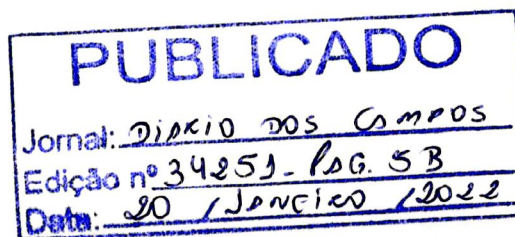 PUBLICADO
Jornal: DIÁRIO DOS CAMPOS
Edição nº 34251 - PÁG. 5B
Data: 20 / JANEIRO / 2022